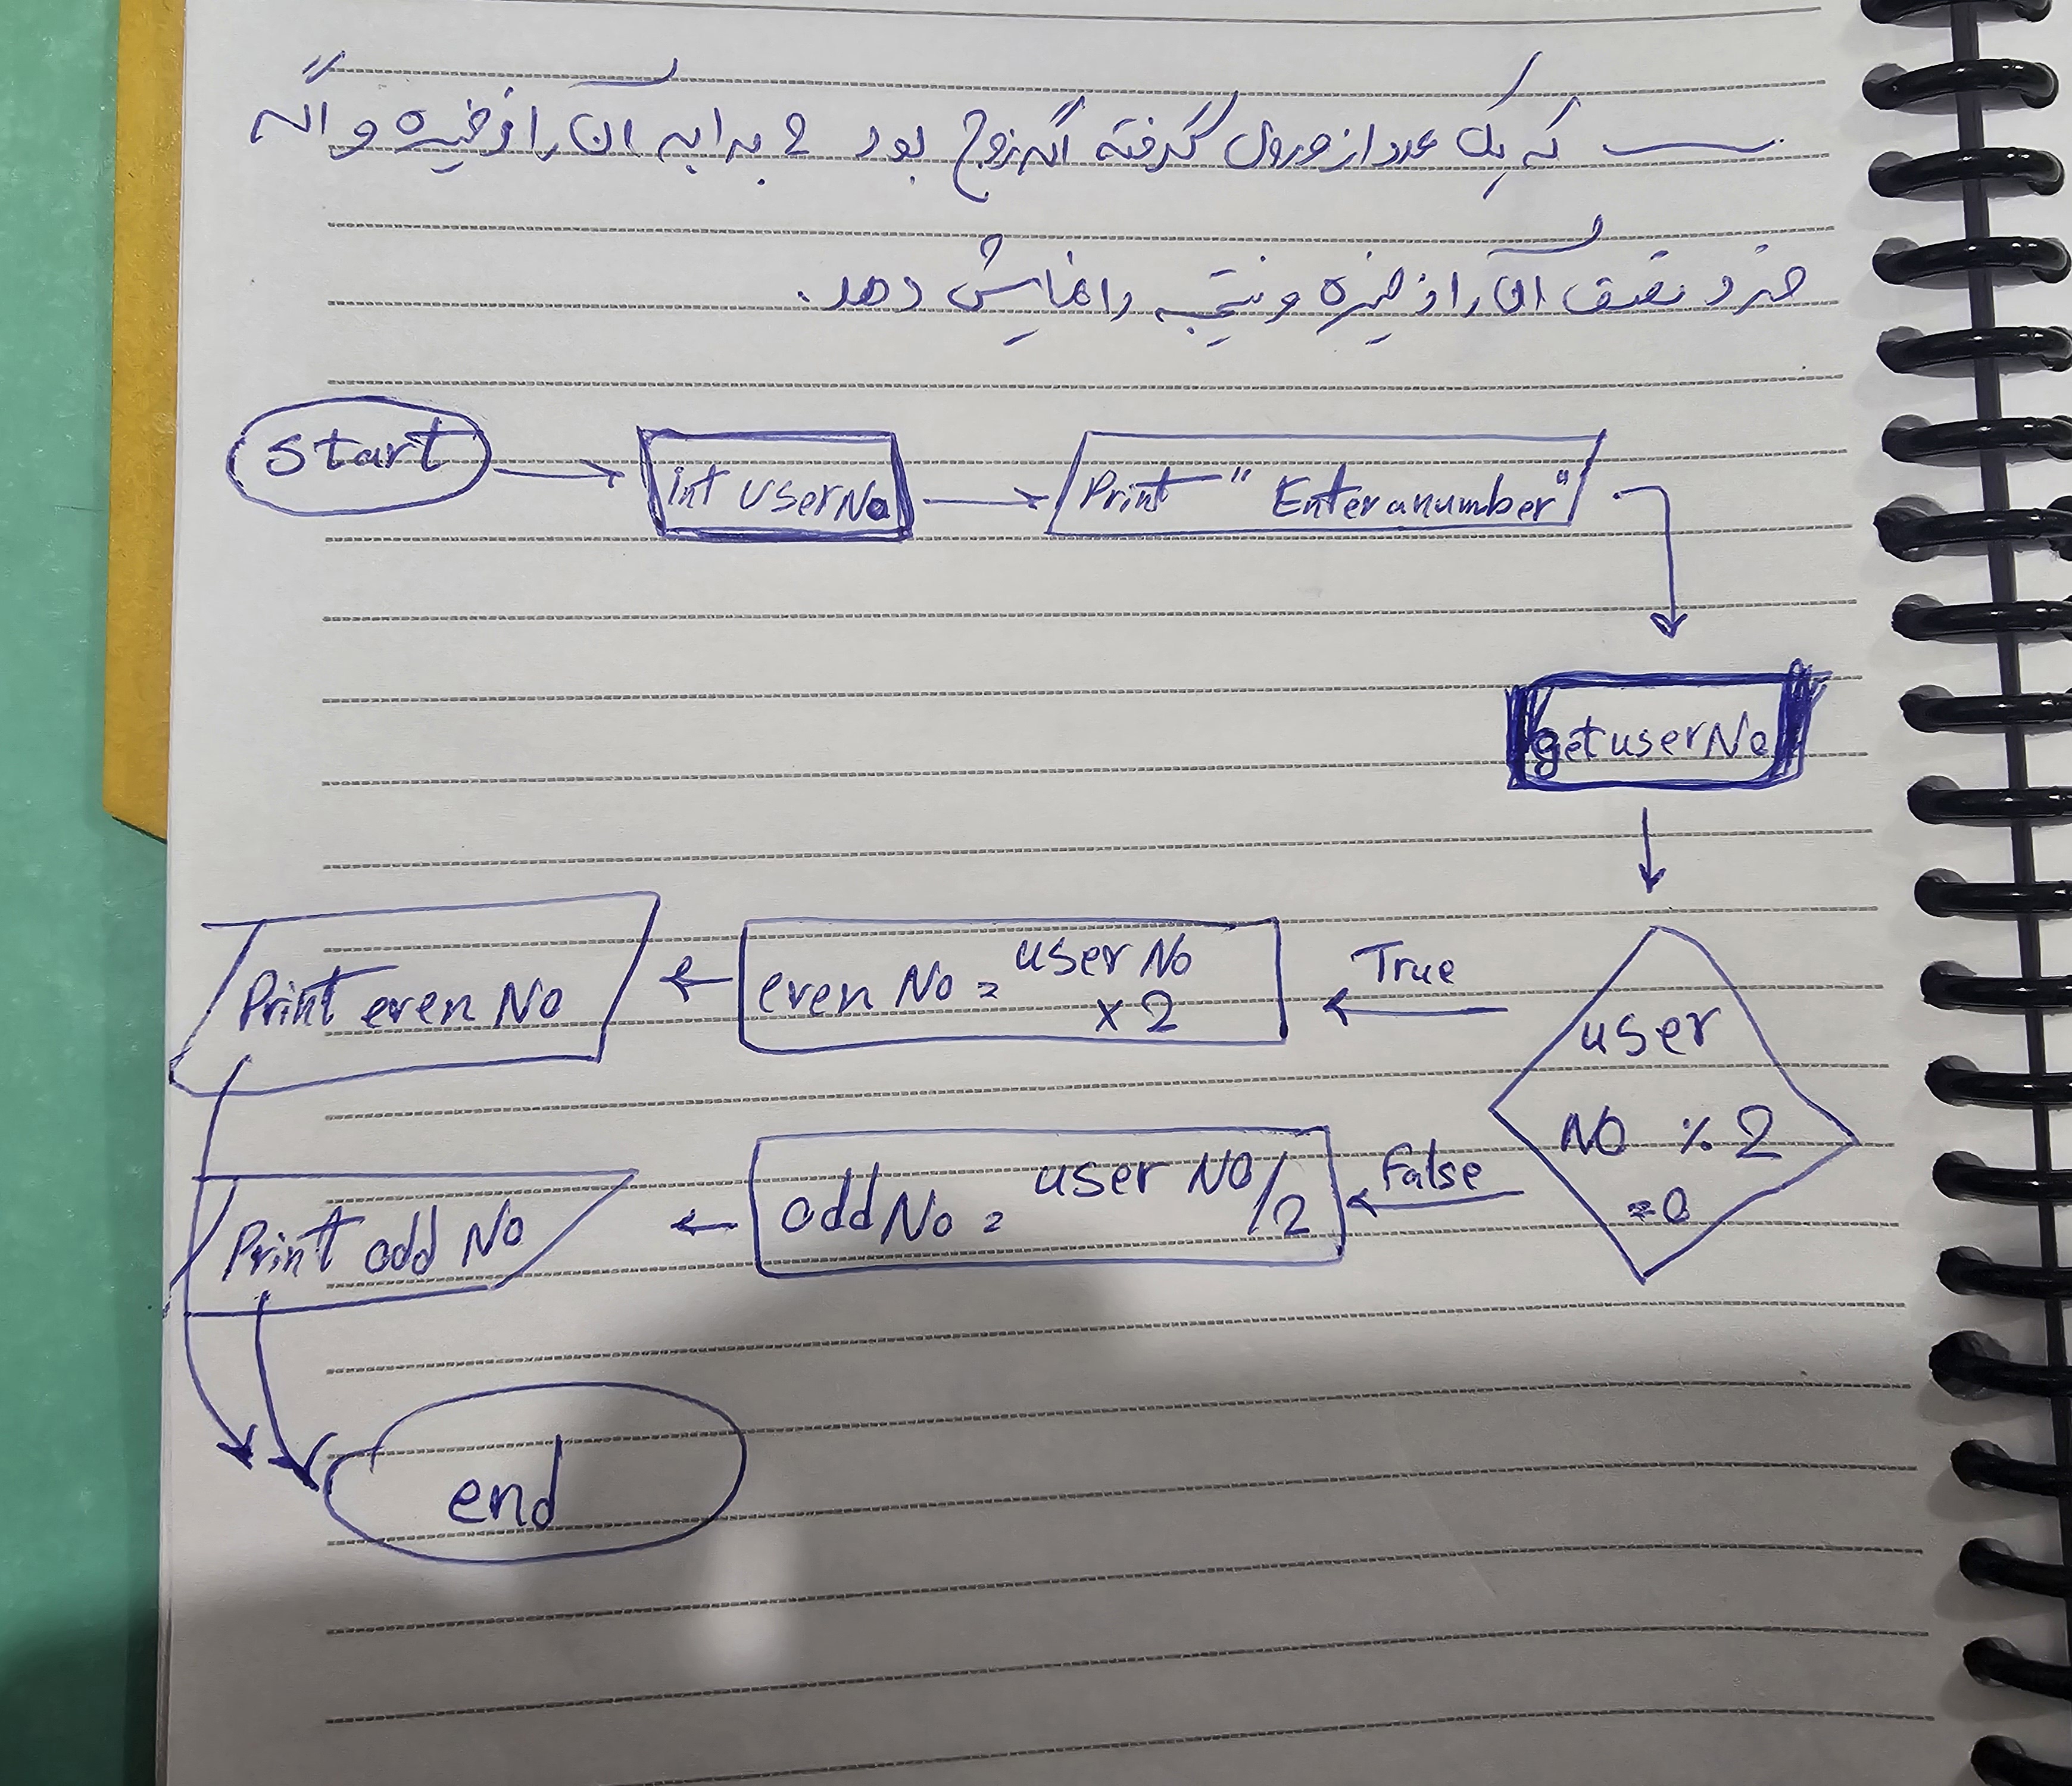 که یک عدد از ورودی گرفته اگه زوج بود 2 برابر آن را ذخیره و اگه
فرد نصف آن را ذخیره و نتیجه را نمایش دهد.
Start
int userNo
Print " Enter a number"
get userNo
user
NO % 2
= 0
True
even No = user No
x 2
Print even No
False
odd No = user NO/2
Print odd No
end